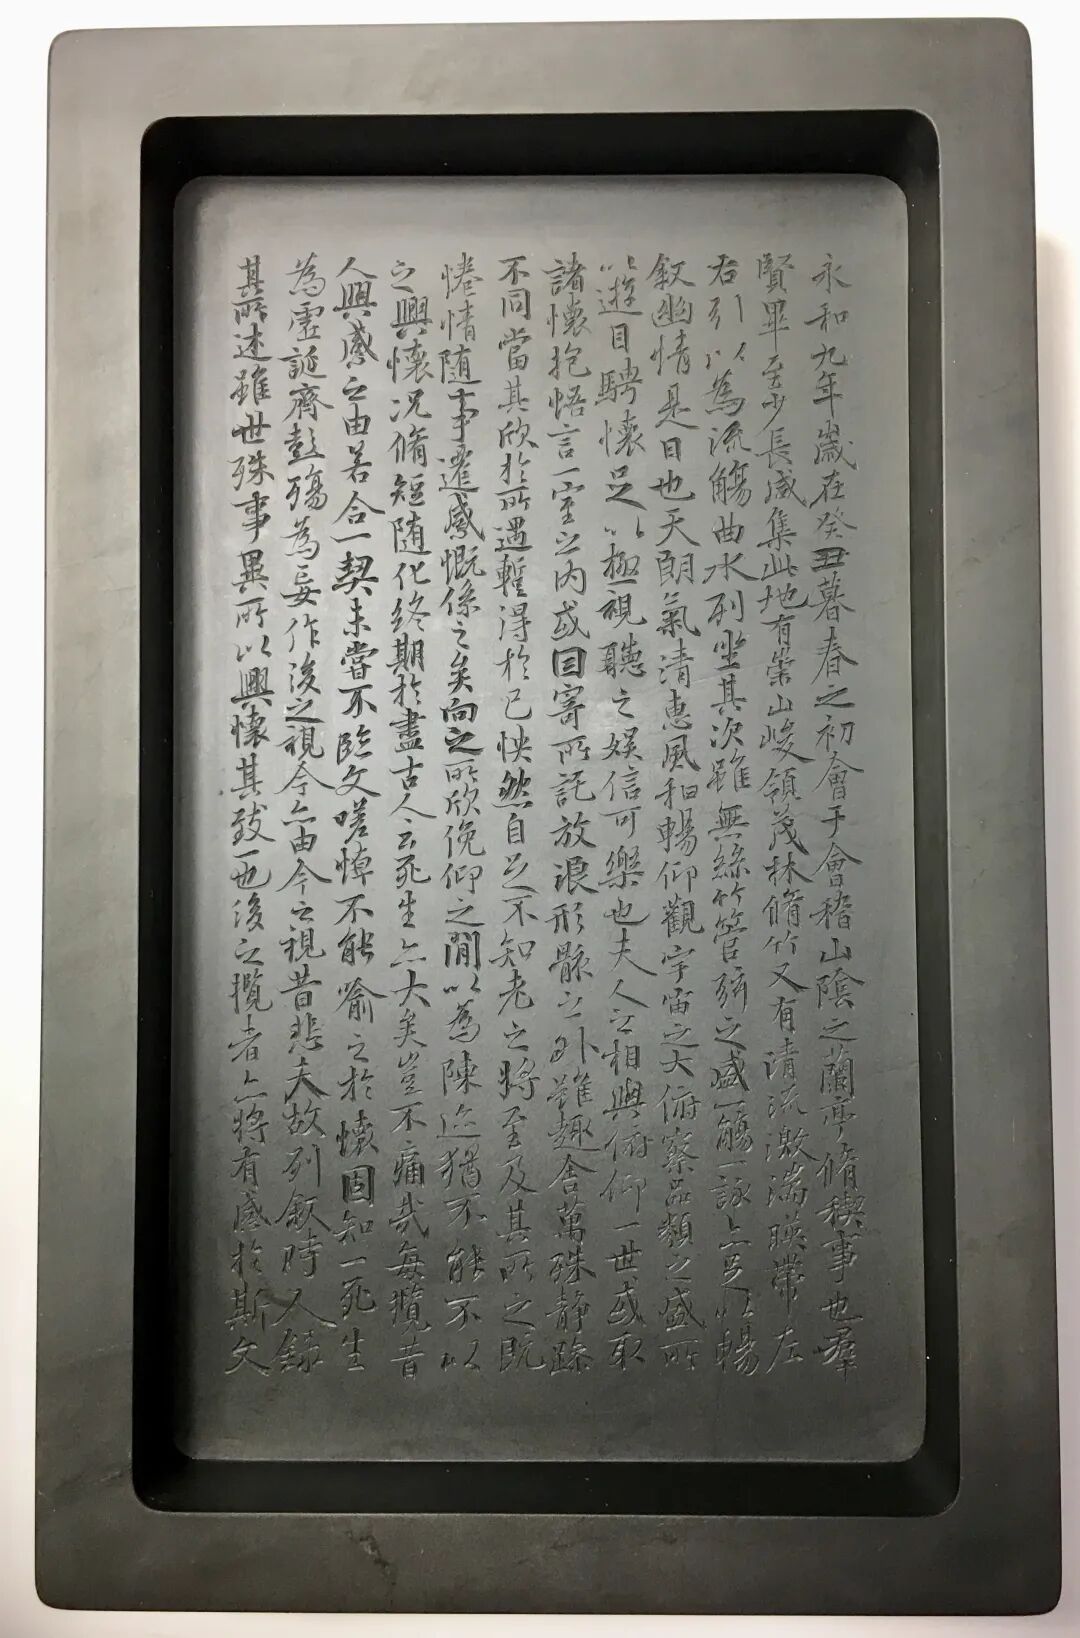 永和九年歲在癸丑暮春之初會于會稽山陰之蘭亭脩稧事也羣
賢畢至少長咸集此地有崇山峻領茂林脩竹又有清流激湍暎帶左
右引以為流觴曲水列坐其次雖無絲竹管弦之盛一觴一詠亦足以暢
敘幽情是日也天朗氣清惠風和暢仰觀宇宙之大俯察品類之盛所
以遊目騁懷足以極視聽之娛信可樂也夫人之相與俯仰一世或取
諸懷抱悟言一室之內或因寄所託放浪形骸之外雖趣舍萬殊靜躁
不同當其欣於所遇暫得於己怏然自足不知老之將至及其所之既
惓情隨事遷感慨係之矣向之所欣俛仰之間以為陳迹猶不能不以
之興懷況脩短隨化終期於盡古人云死生亦大矣豈不痛哉每攬昔
人興感之由若合一契未嘗不臨文嗟悼不能喻之於懷固知一死生
為虛誕齊彭殤為妄作後之視今亦由今之視昔悲夫故列敘時人錄
其所述雖世殊事異所以興懷其致一也後之攬者亦將有感於斯文